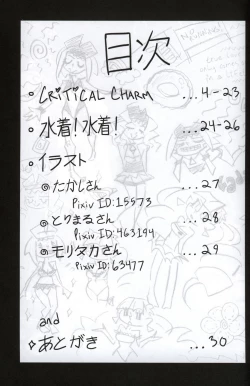 目次
• CRiTiCAL CHARM ...4-23
• 水着!水着! ...24-26
• イラスト
◎たかしさん ...27
Pixiv ID:15573
◎とりまるさん ...28
Pixiv ID:463194
◎モリタカさん ...29
Pixiv ID:63477
and
✧あとがき ...30